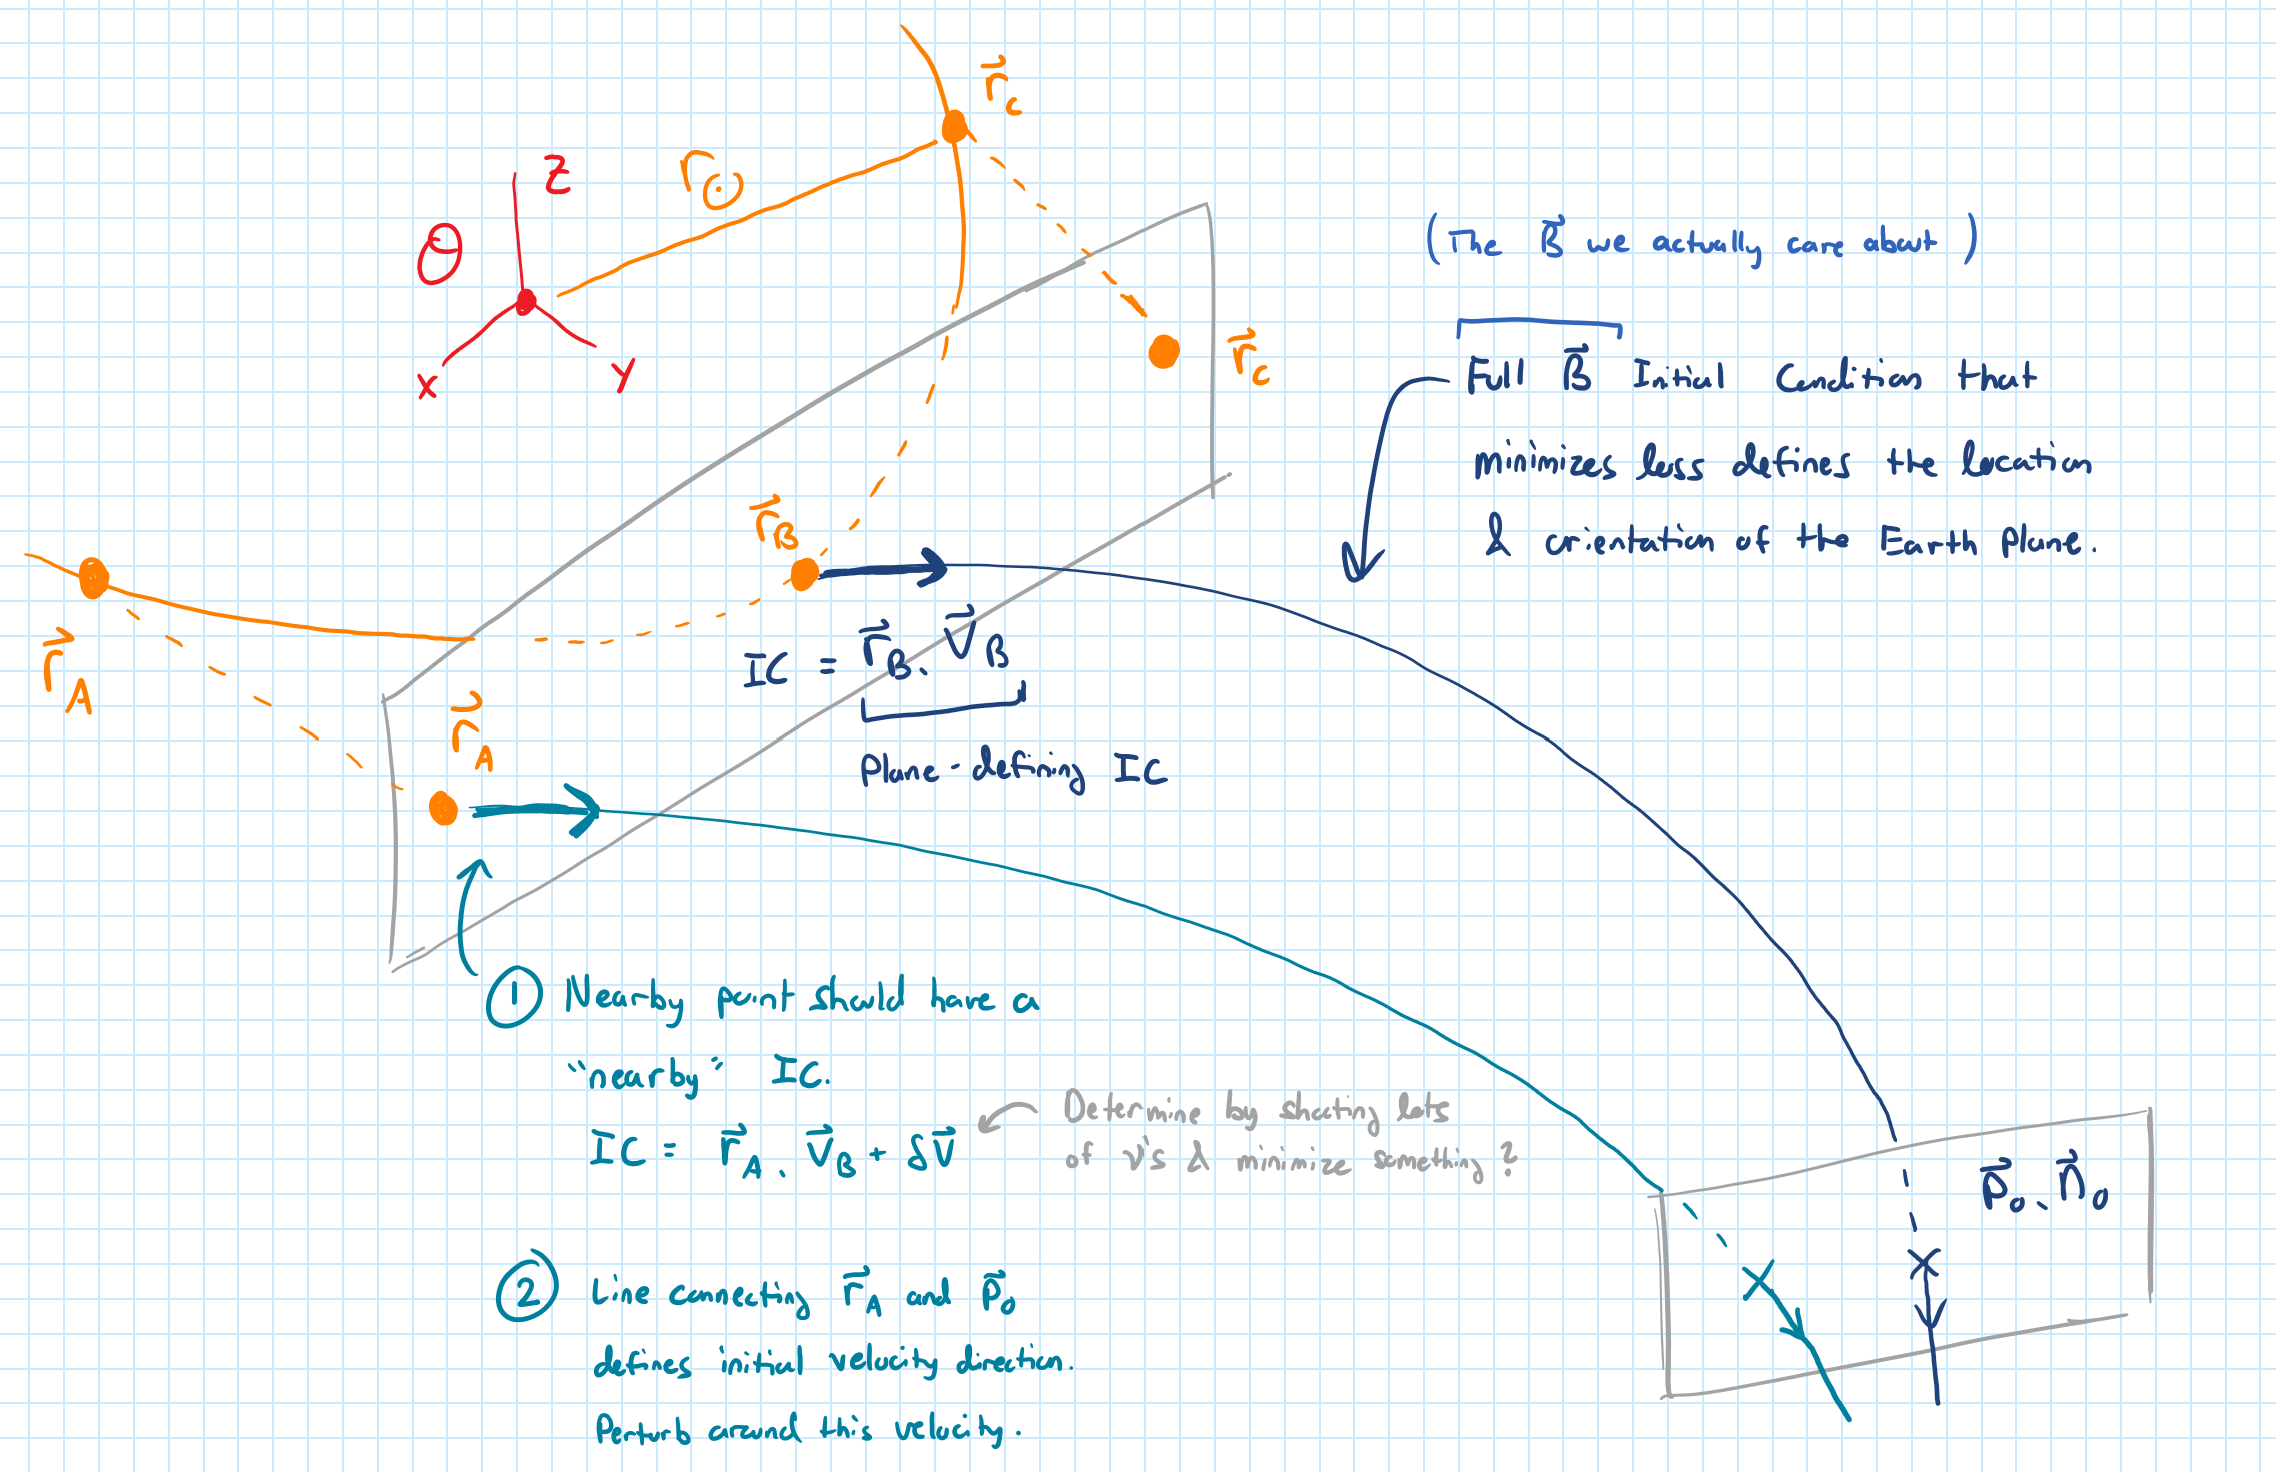 r⃗_C
r_⊙
Z
Θ
X
Y
r⃗_C
(The B⃗ we actually care about)
Full B⃗ Initial Condition that
minimizes loss defines the location
& orientation of the Earth Plane.
r⃗_B
r⃗_A
IC = r⃗_B, V⃗_B
Plane-defining IC
r⃗_A
① Nearby point should have a
"nearby" IC.
IC = r⃗_A, V⃗_B + δV⃗
Determine by shooting lots
of v's & minimize something?
P⃗_0, n⃗_0
② Line connecting r⃗_A and P⃗_0
defines initial velocity direction.
Perturb around this velocity.